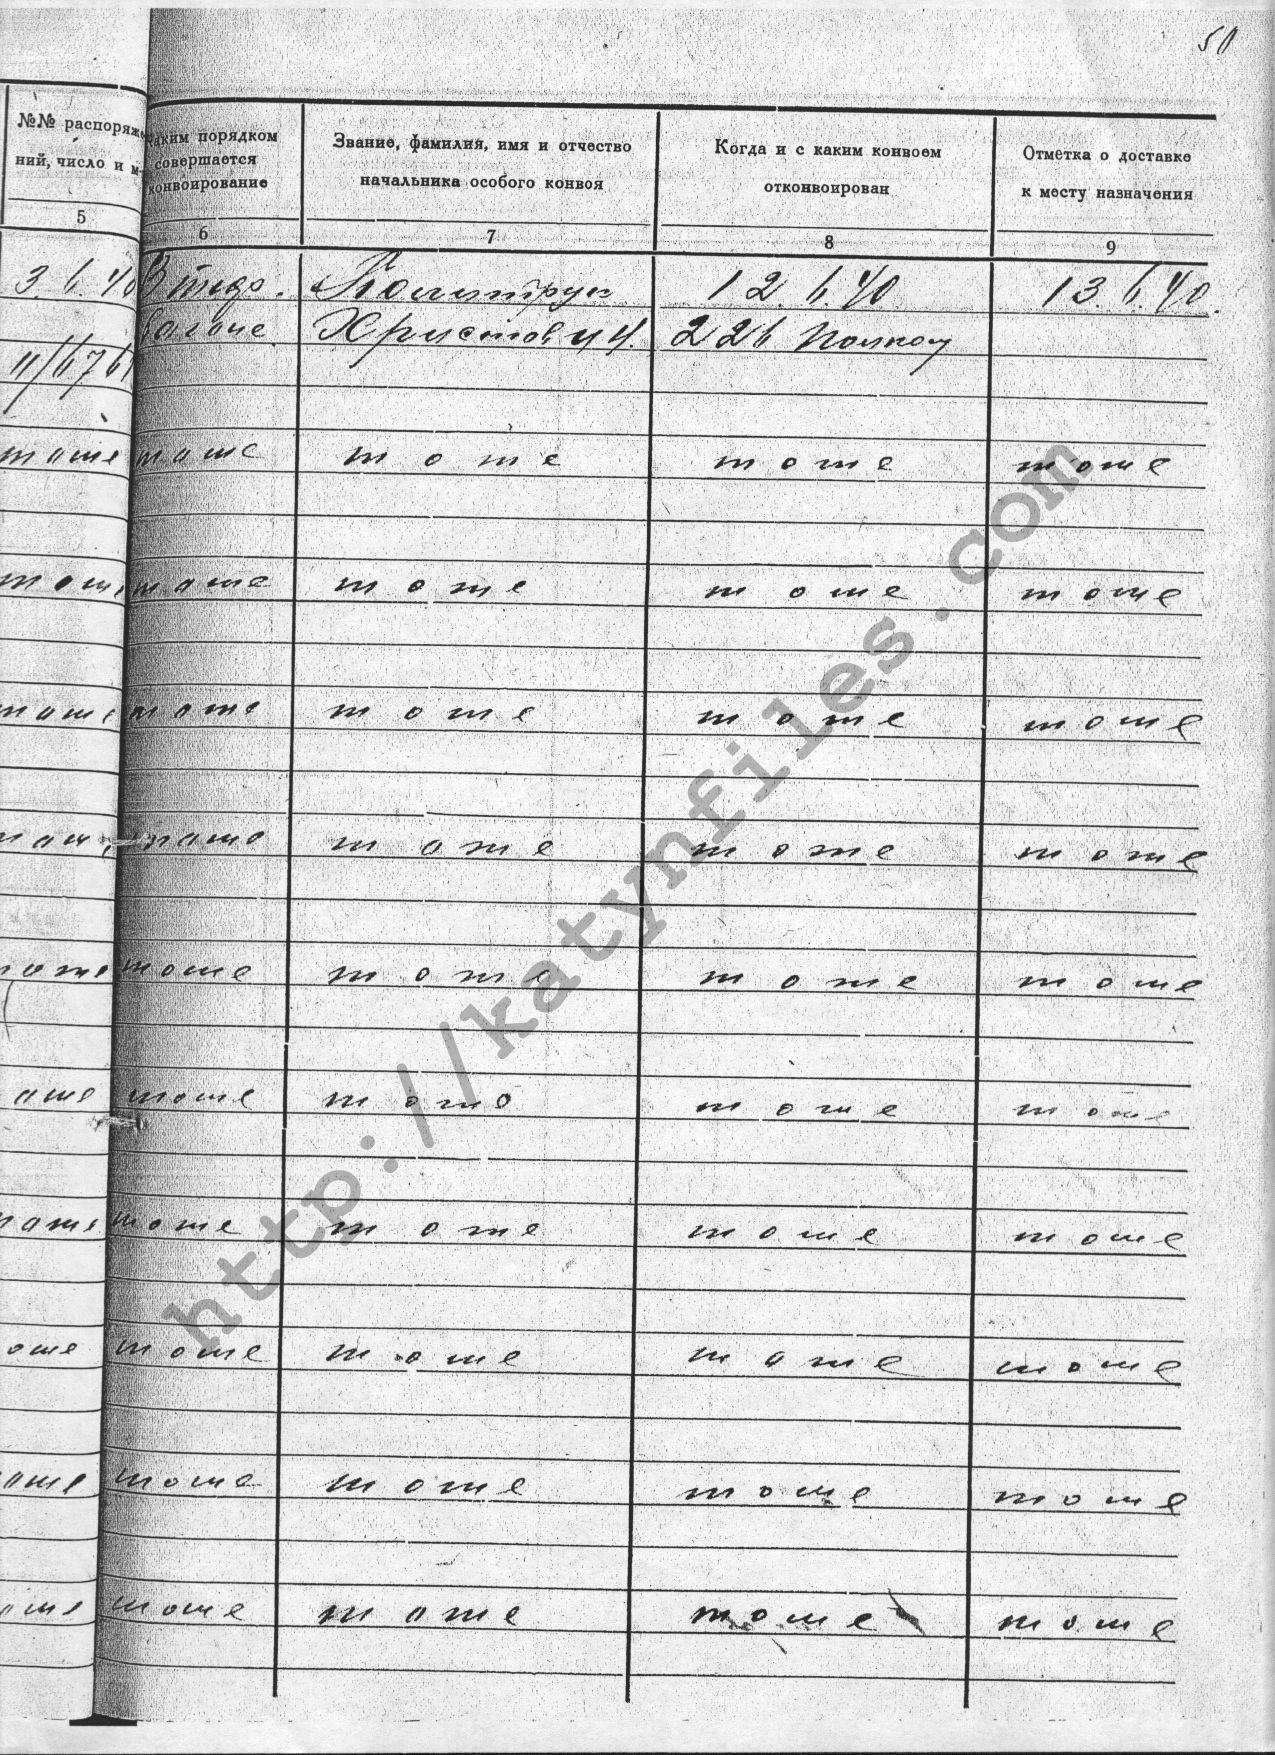 50
№№ распоряже
ний, число и м
Каким порядком
совершается
конвоирование
Звание, фамилия, имя и отчество
начальника особого конвоя
Когда и с каким конвоем
отконвоирован
Отметка о доставке
к месту назначения
5 6 7 8 9
3.6.40 В Политрук 12.6.40 13.6.40.
Христович. 226 полком
11/6761
тоже тоже тоже тоже тоже
тоже тоже тоже тоже тоже
тоже тоже тоже тоже тоже
тож тоже тоже тоже тоже
тоже тоже тоже тоже тоже
оже тоже тоже тоже тоже
тоже тоже тоже тоже тоже
оже тоже тоже тоже тоже
оже тоже тоже тоже тоже
оже тоже тоже тоже тоже
http://katynfiles.com